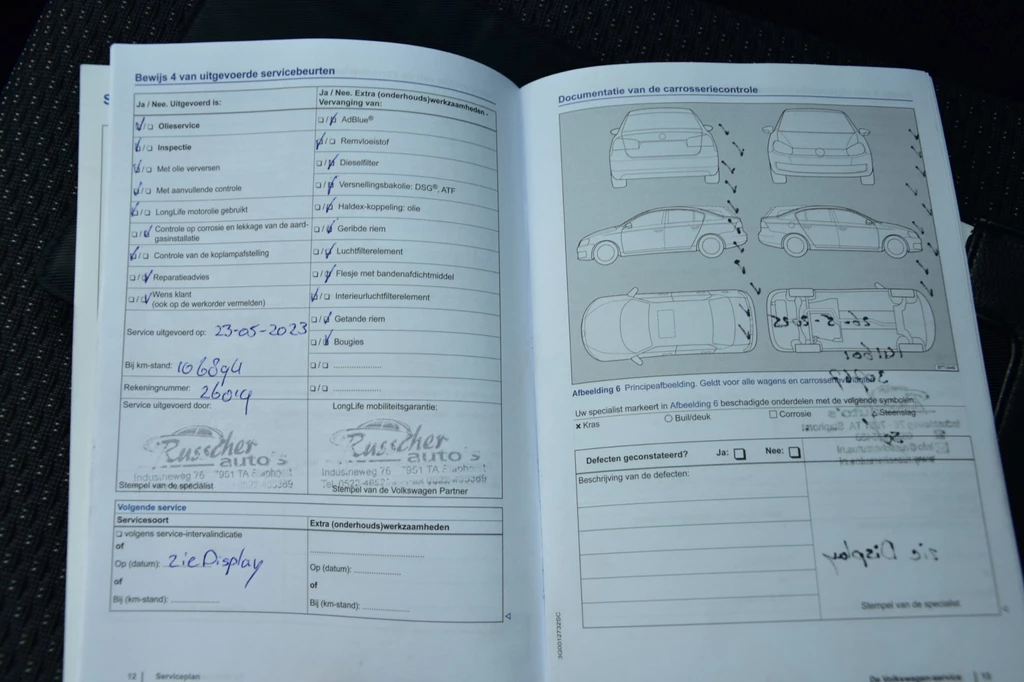 Bewijs 4 van uitgevoerde servicebeurten
Ja / Nee. Uitgevoerd is:
Olieservice
Inspectie
Met olie verversen
Met aanvullende controle
LongLife motorolie gebruikt
Controle op corrosie en lekkage van de aard-
gasinstallatie
Controle van de koplampafstelling
Reparatieadvies
Wens klant
(ook op de werkorder vermelden)
Service uitgevoerd op: 23-05-2023
Bij km-stand: 106894
Rekeningnummer: 26019
Service uitgevoerd door:
Russcher
auto's
Industrieweg 76 7951 TA
Stempel van de specialist
Ja / Nee. Extra (onderhouds)werkzaamheden -
Vervanging van:
AdBlue®
Remvloeistof
Dieselfilter
Versnellingsbakolie: DSG®, ATF
Haldex-koppeling: olie
Geribde riem
Luchtfilterelement
Flesje met bandenafdichtmiddel
Interieurluchtfilterelement
Getande riem
Bougies
LongLife mobiliteitsgarantie:
Russcher
auto's
Industrieweg 76 7951 TA
Stempel van de Volkswagen Partner
Volgende service
Servicesoort
volgens service-intervalindicatie
of
Op (datum): zie Display
of
Bij (km-stand):
Extra (onderhouds)werkzaamheden
Op (datum):
of
Bij (km-stand):
12 | Serviceplan
Documentatie van de carrosseriecontrole
Afbeelding 6 Principeafbeelding. Geldt voor alle wagens en
Uw specialist markeert in Afbeelding 6 beschadigde onderdelen met de volgende symbolen:
× Kras
Buil/deuk
Corrosie
Steenslag
Defecten geconstateerd? Ja: Nee:
Beschrijving van de defecten:
Stempel van de specialist
De Volkswagen-service | 13